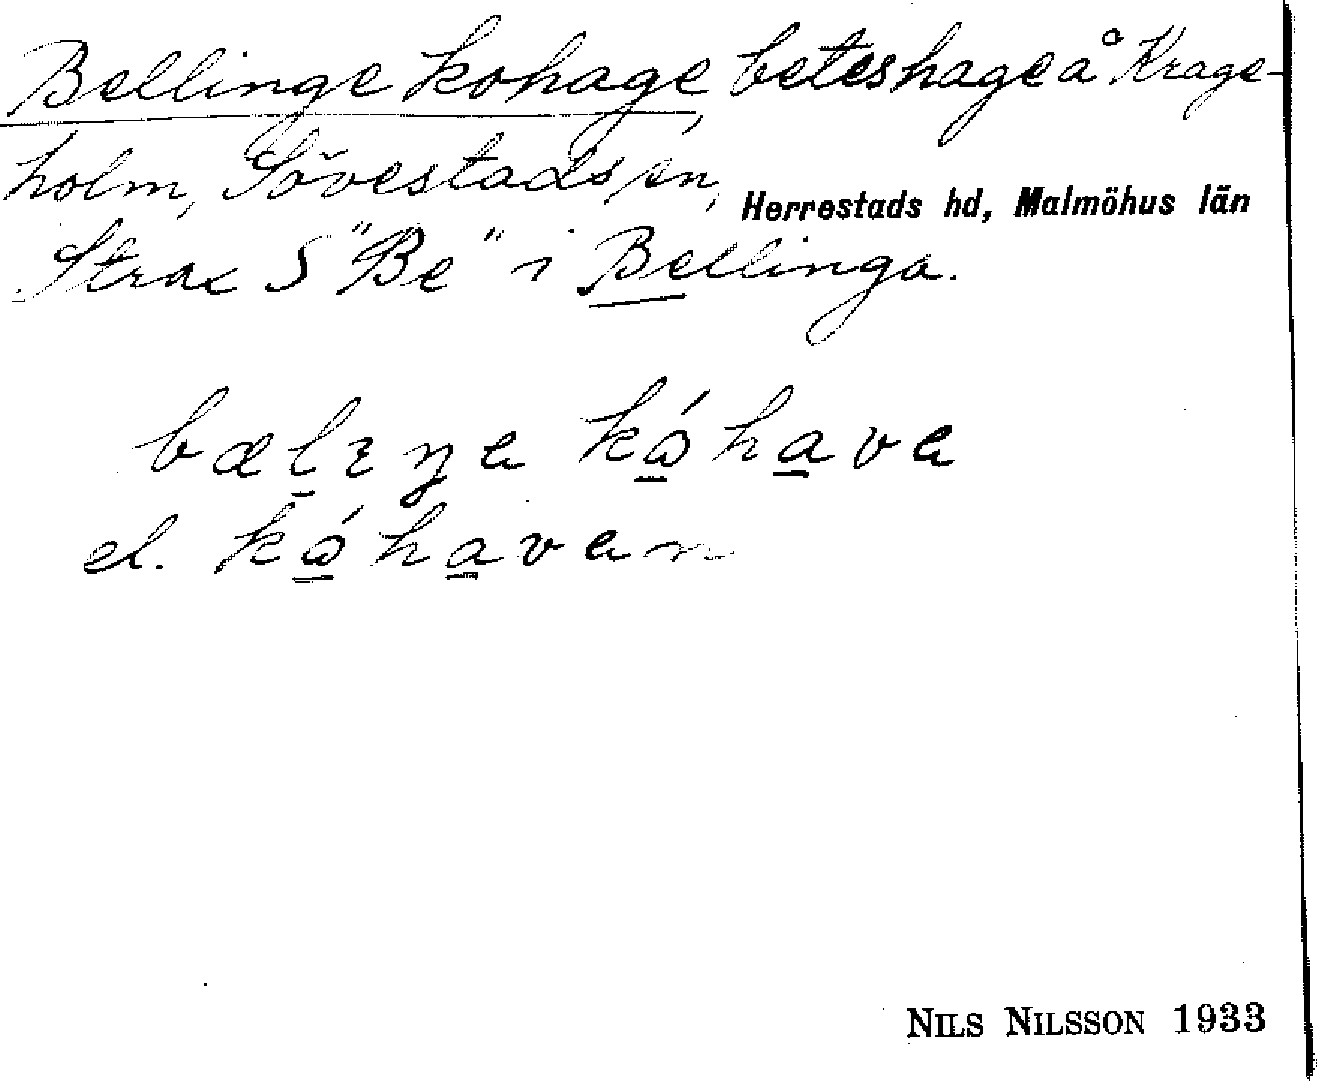 Bellinge kohage, beteshage å Krage-
holm, Sövestads sn, Herrestads hd, Malmöhus län
Strax S "Be" i Bellinga.
bælıŋa kǻhava
el. kǻhavan
NILS NILSSON 1933